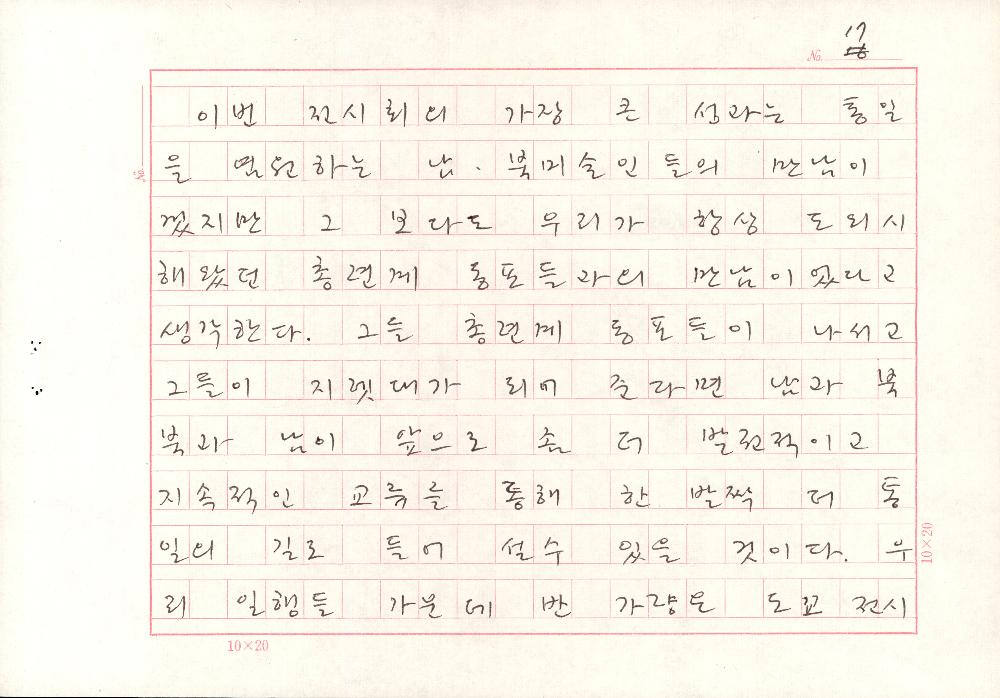 No. 17
이번 전시회의 가장 큰 성과는 통일
을 염원하는 남·북미술인들의 만남이
겠지만 그 보다도 우리가 항상 도외시
해왔던 총련계 동포들과의 만남이었다고
생각한다. 그들 총련계 동포들이 나서고
그들이 지렛대가 되어 준다면 남과 북
북과 남이 앞으로 좀 더 발전적이고
지속적인 교류를 통해 한 발짝 더 통
일의 길로 들어 설수 있을 것이다. 우
리 일행들 가운데 반 가량은 도쿄 전시
No.
10×20
10×20